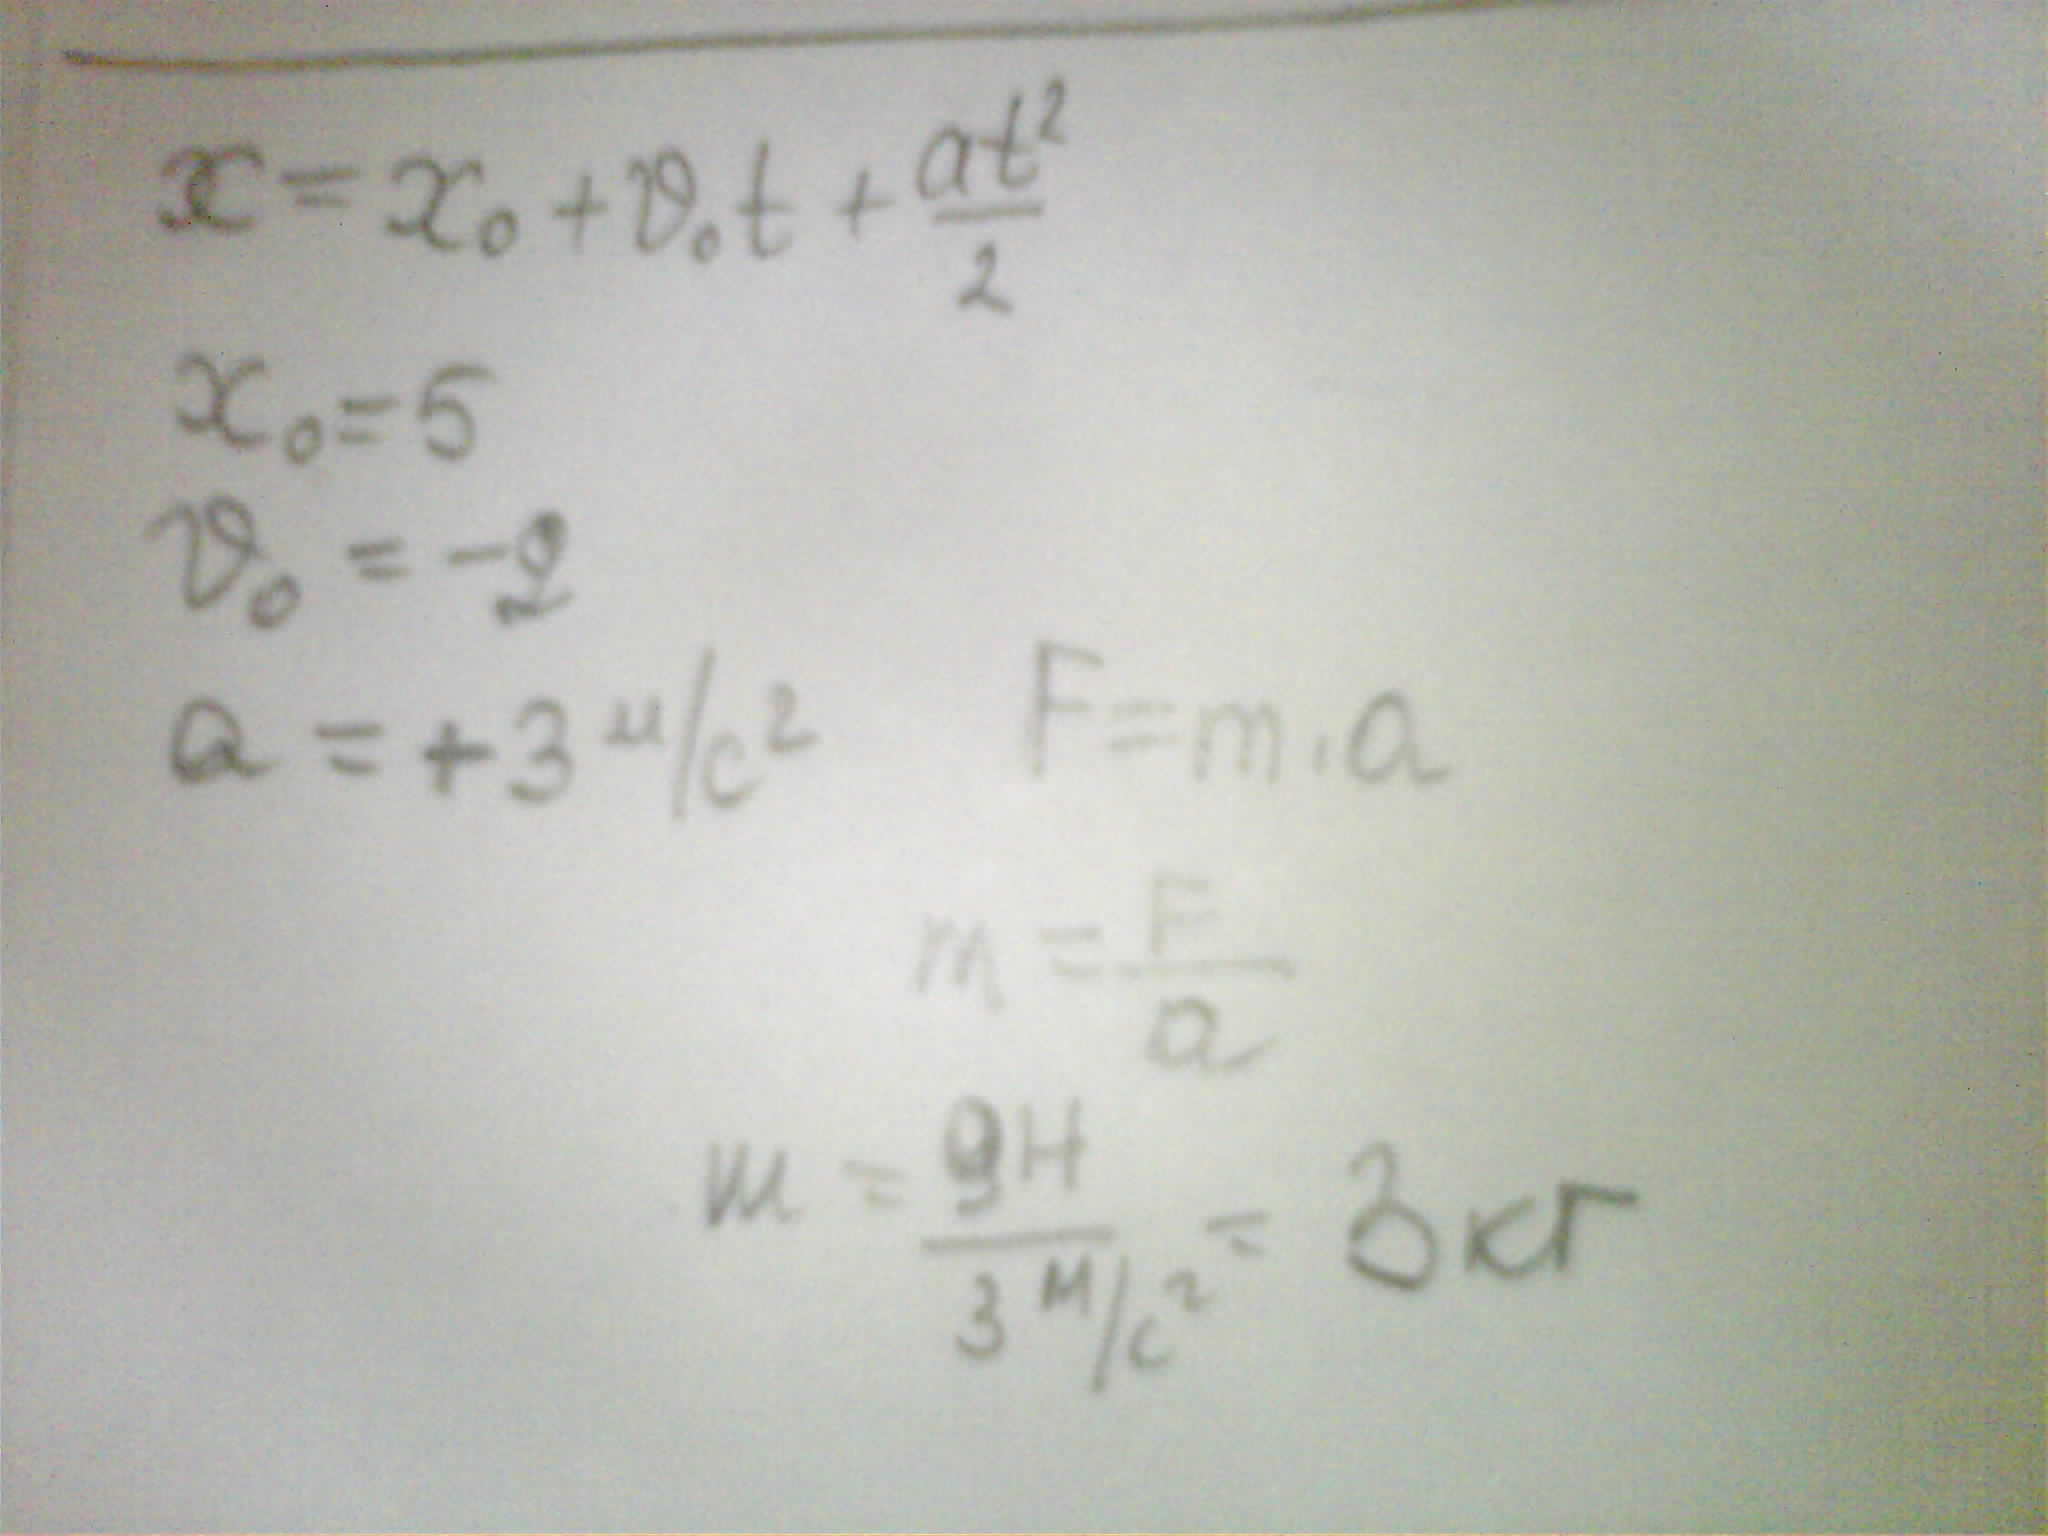 x = x₀ + v₀t + at²/2
x₀ = 5
v₀ = -2
a = +3 м/с²
F = m · a
m = F/a
m = 9Н / 3 м/с² = 3 кг